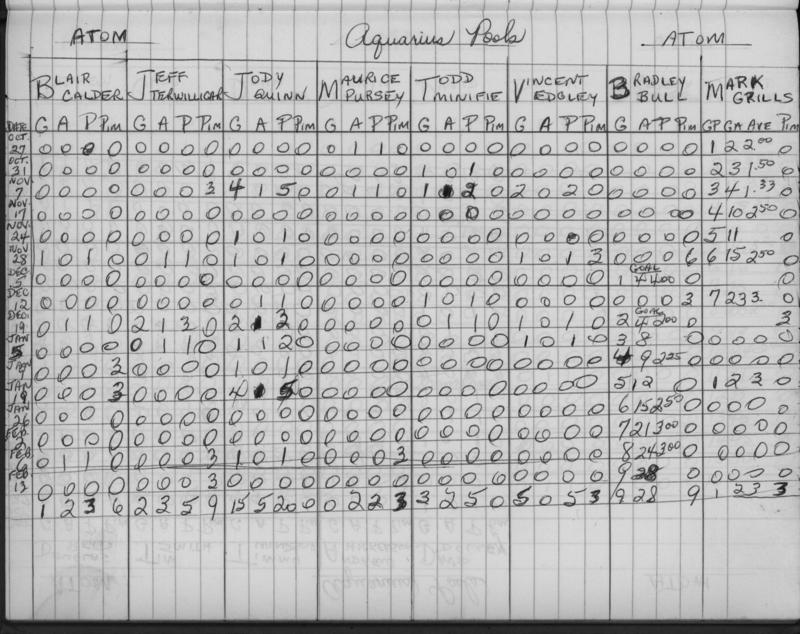 ATOM Aquarius Pools ATOM
BLAIR CALDER JEFF TERWILLIGAR JODY QUINN MAURICE PURSEY TODD MINIFIE VINCENT EDGLEY BRADLEY BULL MARK GRILLS
DATE G A P Pim G A P Pim G A P Pim G A P Pim G A P Pim G A P Pim G A P Pim GP GA AVE Pim
OCT. 27 0 0 0 0 0 0 0 0 0 0 0 0 0 1 1 0 0 0 0 0 0 0 0 0 0 0 0 0 1 2 2.00 0
OCT. 31 0 0 0 0 0 0 0 0 0 0 0 0 0 0 0 0 1 0 1 0 0 0 0 0 0 0 0 0 2 3 1.50 0
NOV. 7 0 0 0 0 0 0 0 3 4 1 5 0 0 1 1 0 1 2 0 2 0 2 0 0 0 0 0 3 4 1.33 0
NOV. 17 0 0 0 0 0 0 0 0 0 0 0 0 0 0 0 0 0 0 0 0 0 0 0 0 0 0 0 0 4 10 2.50 0
NOV. 24 0 0 0 0 0 0 0 0 1 0 1 0 0 0 0 0 0 0 0 0 0 0 0 0 0 0 0 0 5 11 0
NOV 28 1 0 1 0 0 1 1 0 1 0 1 0 0 0 0 0 0 0 0 0 1 0 1 3 0 0 0 6 6 15 2.50 0
DEC. 5 0 0 0 0 0 0 0 0 0 0 0 0 0 0 0 0 0 0 0 0 0 0 0 0 GOAL 1 4 4.00 0 0
DEC 12 0 0 0 0 0 0 0 0 0 1 1 0 0 0 0 0 1 0 1 0 0 0 0 0 0 0 0 3 7 23 3. 0
DEC. 19 0 1 1 0 2 1 3 0 2 3 0 0 0 0 0 0 1 1 0 1 0 1 0 GOAL 2 4 2.00 0 3
JAN 5 0 0 0 0 0 1 1 0 1 1 2 0 0 0 0 0 0 0 0 0 1 0 1 0 3 8 0 0 0 0 0
JAN 9 0 0 0 3 0 0 0 0 1 0 1 0 0 0 0 0 0 0 0 0 0 0 0 0 4 9 2.25 0 0 0 0 0
JAN 19 0 0 0 3 0 0 0 0 4 5 0 0 0 0 0 0 0 0 0 0 0 0 0 5 12 0 1 2 2 0
JAN 26 0 0 0 0 0 0 0 0 0 0 0 0 0 0 0 0 0 0 0 0 0 0 0 0 6 15 2.50 0 0 0 0 0
FEB 0 0 0 0 0 0 0 0 0 0 0 0 0 0 0 0 0 0 0 0 0 0 0 0 7 21 3.00 0 0 0 0 0
FEB. 0 1 1 0 0 0 0 3 1 0 1 0 0 0 0 3 0 0 0 0 0 0 0 0 8 24 3.00 0 0 0 0 0
FEB 13 0 0 0 0 0 0 0 3 0 0 0 0 0 0 0 0 0 0 0 0 0 0 0 0 9 28 0 0 0 0 0
1 2 3 6 2 3 5 9 15 5 20 0 0 2 2 3 3 2 5 0 5 0 5 3 9 28 9 1 2 3 3